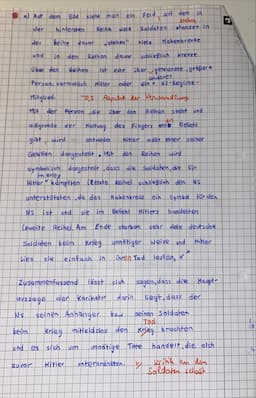 a) Auf dem Bild sieht man ein Feld auf dem in
der hintersten Reihe viele Soldaten standen in
der Reihe davor "stehen" viele Hakenkreuze
und in den Reihen davor schließlich Kreuze.
Über den Reihen ist eine über
Person, vermutlich Hitler oder ein NS-Regime-
Mitglied.
Mit der Person, die über den Reihen steht und
aufgrund der Haltung des Fingers ein Befehl
gibt, wird entweder Hitler oder einer seiner
Gehilfen dargestellt. Mit den Reihen wird
symbolisch dargestellt, dass die Soldaten, die für
im Krieg
Hitler kämpften (letzte Reihe) schließlich den NS
unterstützten, da das Hakenkreuz ein Symbol für den
NS ist und sie im Befehl Hitlers handelten
(zweite Reihe). Am Ende starben sehr viele deutsche
Soldaten beim Krieg unnötiger Weise und Hitler
lies sie einfach in ihren Tod laufen.
Zusammenfassend lässt sich sagen, dass die Haupt-
aussage der Karikatur darin liegt, dass der
NS seinen Anhänger bzw seinen Soldaten
Tod
beim Krieg mitleidslos den Krieg brachten
und es sich um unnötige Tote handelt, die sich
zuvor Hitler unterordneten.
Soldaten selbst